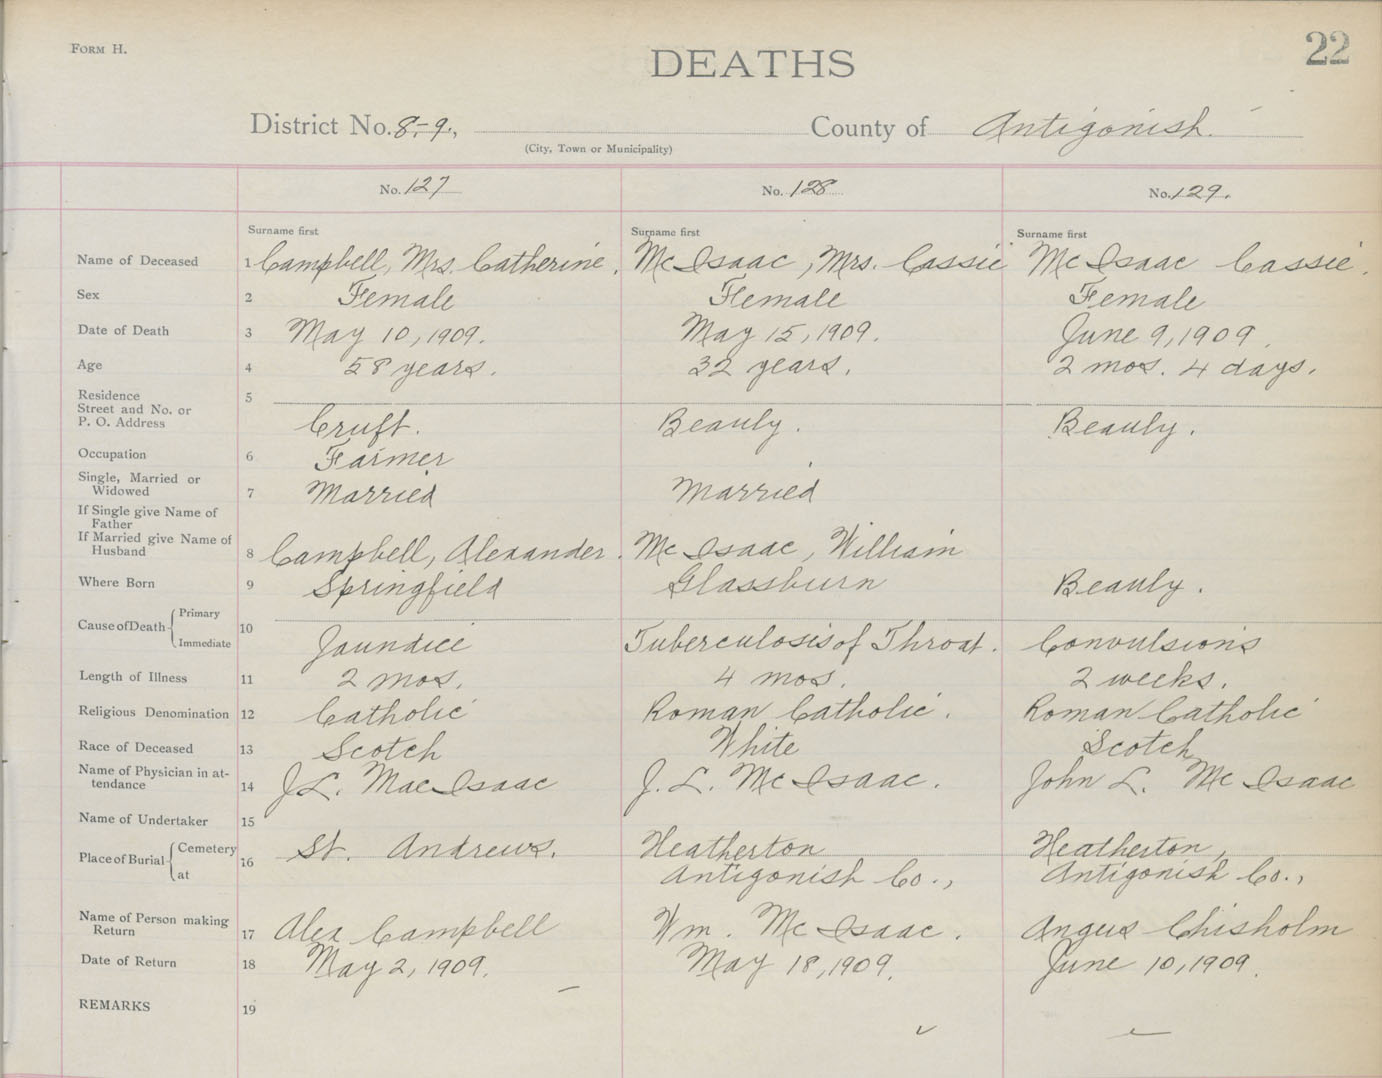 FORM H.
DEATHS
22
District No. 8-9., County of Antigonish.
(City, Town or Municipality)
No. 127 No. 128 No. 129.
Surname first Surname first Surname first
Name of Deceased 1 Campbell, Mrs. Catherine. McIsaac, Mrs. Cassie McIsaac Cassie.
Sex 2 Female Female Female
Date of Death 3 May 10, 1909. May 15, 1909. June 9, 1909.
Age 4 58 years. 32 years. 2 mos. 4 days.
Residence 5
Street and No. or
P. O. Address Cruft. Beauly. Beauly.
Occupation 6 Farmer
Single, Married or
Widowed 7 Married Married
If Single give Name of
Father
If Married give Name of
Husband 8 Campbell, Alexander. McIsaac, William
Where Born 9 Springfield Glassburn Beauly.
Cause of Death Primary
10
Immediate Jaundice Tuberculosis of Throat. Convulsions
Length of Illness 11 2 mos. 4 mos. 2 weeks.
Religious Denomination 12 Catholic Roman Catholic. Roman Catholic
Race of Deceased 13 Scotch White Scotch
Name of Physician in at-
tendance 14 J.L. MacIsaac J. L. McIsaac. John L. McIsaac
Name of Undertaker 15
Place of Burial Cemetery 16 St. Andrews. Heatherton Heatherton,
at Antigonish Co., Antigonish Co.,
Name of Person making
Return 17 Alex Campbell Wm. McIsaac. Angus Chisholm
Date of Return 18 May 2, 1909. May 18, 1909. June 10, 1909.
REMARKS 19